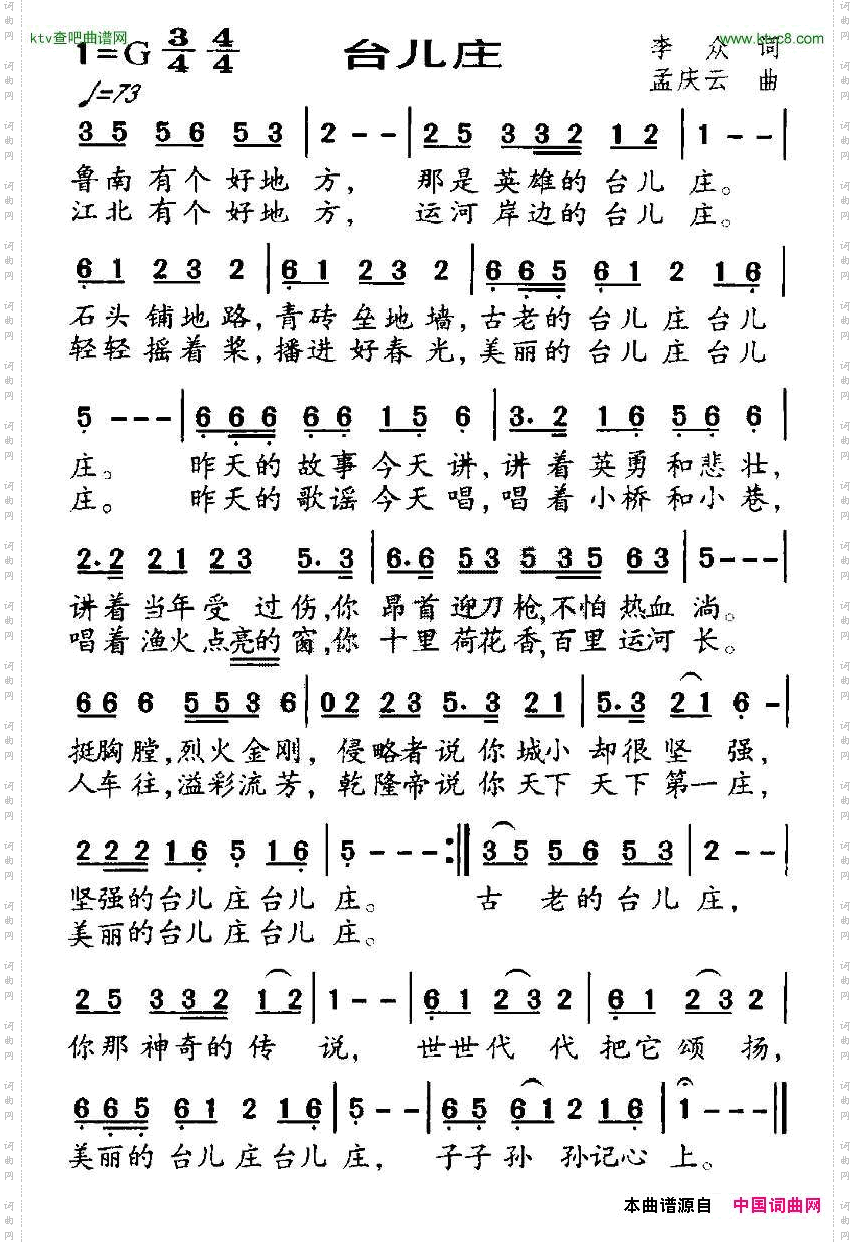 ktv查吧曲谱网
www.ktvc8.com
1=G 3/4 4/4 台儿庄 李众 词
♩=73 孟庆云 曲
3 5 5 6 5 3 | 2 - - | 2 5 3 3 2 1 2 | 1 - - |
鲁南有个好地方， 那是英雄的台儿庄。
江北有个好地方， 运河岸边的台儿庄。
6 1 2 3 2 | 6 1 2 3 2 | 6 6 5 6 1 2 1 6 |
石头铺地路，青砖垒地墙，古老的台儿庄台儿
轻轻摇着桨，播进好春光，美丽的台儿庄台儿
5 - - - | 6 6 6 6 6 1 5 6 | 3. 2 1 6 5 6 6 |
庄。 昨天的故事今天讲，讲着英勇和悲壮，
庄。 昨天的歌谣今天唱，唱着小桥和小巷，
2. 2 2 1 2 3 5. 3 | 6. 6 5 3 5 3 5 6 3 | 5 - - - |
讲着当年受过伤，你昂首迎刀枪，不怕热血淌。
唱着渔火点亮的窗，你十里荷花香，百里运河长。
6 6 6 5 5 3 6 | 0 2 2 3 5. 3 2 1 | 5. 3 2 1 6 - |
挺胸膛，烈火金刚，侵略者说你城小却很坚强，
人车往，溢彩流芳，乾隆帝说你天下天下第一庄，
2 2 2 1 6 5 1 6 | 5 - - - :| 3 5 5 6 5 3 | 2 - - |
坚强的台儿庄台儿庄。 古老的台儿庄，
美丽的台儿庄台儿庄。
2 5 3 3 2 1 2 | 1 - - | 6 1 2 3 2 | 6 1 2 3 2 |
你那神奇的传说， 世世代代把它颂扬，
6 6 5 6 1 2 1 6 | 5 - - | 6 5 6 1 2 1 6 | 1 - - |
美丽的台儿庄台儿庄， 子子孙孙记心上。
本曲谱源自 中国词曲网